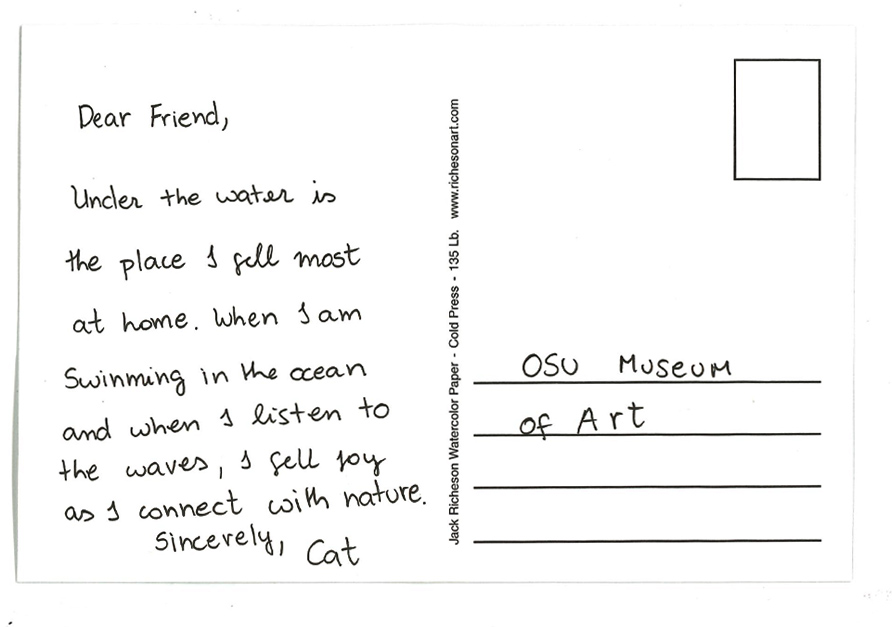 Dear Friend,
Under the water is
the place I fell most
at home. When I am
Swinming in the ocean
and when I listen to
the waves, I fell joy
as I connect with nature.
Sincerely, Cat
Jack Richeson Watercolor Paper - Cold Press - 135 Lb. www.richesonart.com
OSU MUSEUM
of Art